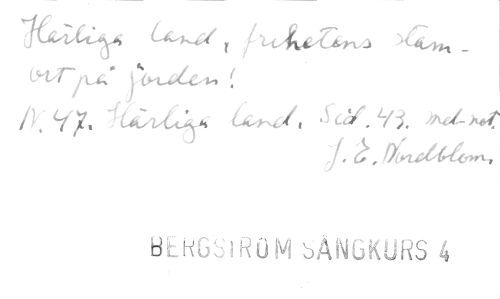 Härliga land, frihetens stam-
ort på jorden!
N. 47. Härliga land. Sid. 43. md-not.
J. E. Nordblom.
BERGSTRÖM SÅNGKURS 4